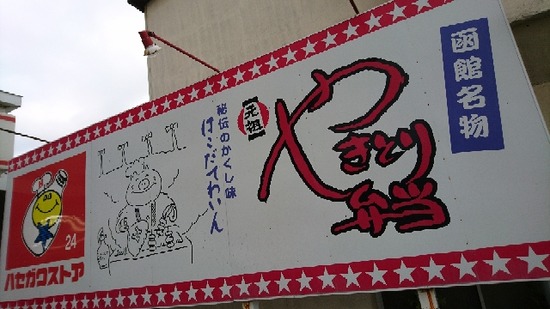 函館名物
元祖
やきとり
弁当
秘伝のかくし味
はこだてわいん
24
ハセガワストア